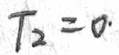 T₂ = 0.